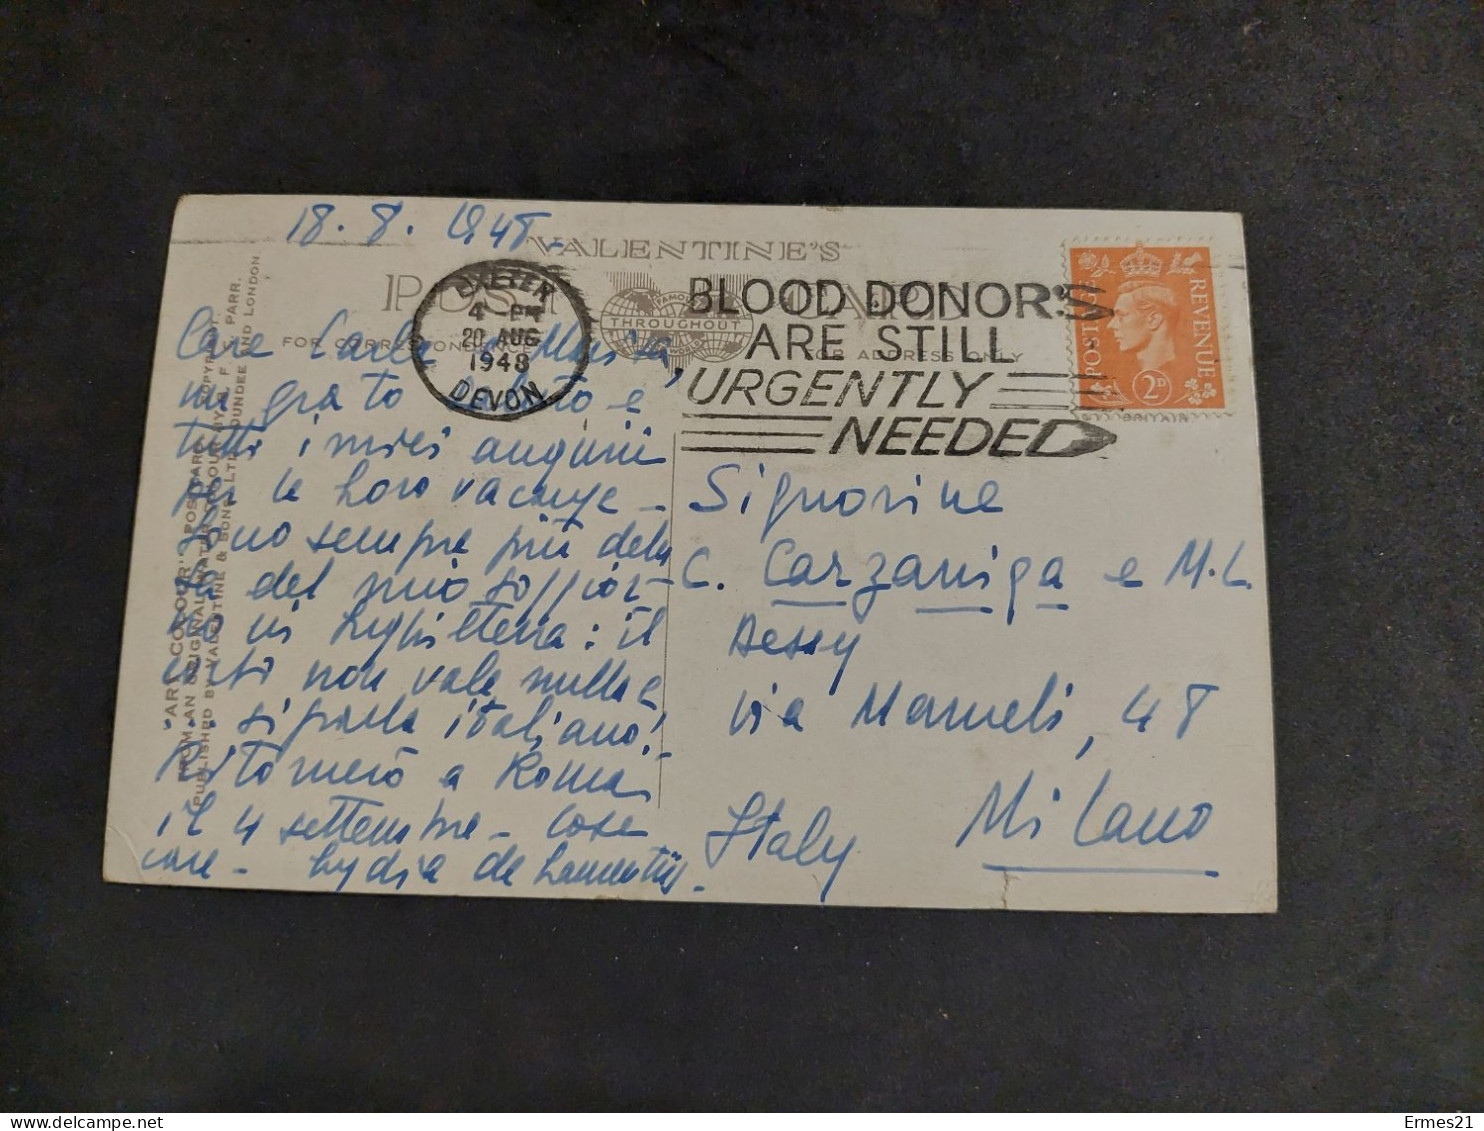 18.8.1948-
VALENTINE'S
POST CARD
FAMOUS
THROUGHOUT
THE WORLD
FOR CORRESPONDENCE
FOR ADDRESS ONLY
EXETER
4 PM
20 AUG
1948
DEVON
BLOOD DONORS
ARE STILL
URGENTLY
NEEDED
POSTAGE REVENUE
2D
Care Carla e
mi
tutti i miei auguri
per le loro vacanze -
Sono sempre più
del mio soggior-
no in Inghilterra: il
non vale nulla e
si parla italiano! -
Ritornerò a Roma
il 4 settembre - Cose
care - Lydia de
"ART COLOUR" POSTCARD
FROM AN ORIGINAL WATER COLOUR BY B. F. C. PARR.
PUBLISHED BY VALENTINE & SONS, LTD. DUNDEE AND LONDON.
COPYRIGHT.
Signorine
C. Carzaniga e M.L.
Dessy
via Mameli, 48
Milano
Italy
Ermes21